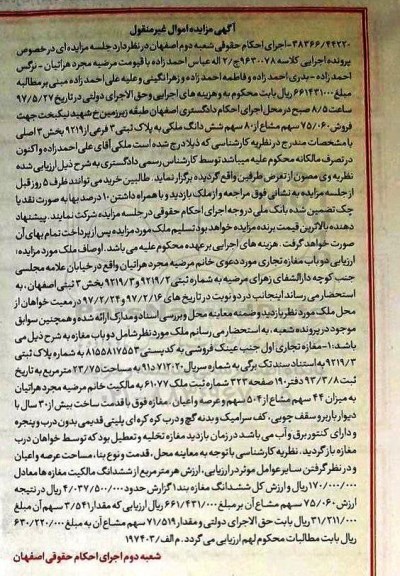 آگهی مزایده اموال غیرمنقول
۳۸۳۶۶/۴۴۲۲۰-اجرای احکام حقوقی شعبه دوم اصفهان در نظر دارد جلسه مزایده ای در خصوص
پرونده اجرایی کلاسه ۹۶۳۰۰۷۸ج/۲ اله عباس احمد زاده با قیمومت مرضیه مجرد هراتیان - نرگس
احمد زاده - بدری احمد زاده و فاطمه احمد زاده و زهرا نگینی و علیه علی احمد زاده مبنی بر مطالبه
مبلغ ۶۶۱۴۳۱۰۰۰ ریال بابت محکوم به و هزینه های اجرایی و حق الاجرای دولتی در تاریخ ۹۷/۵/۲۷
ساعت ۸/۵ صبح در محل اجرای احکام دادگستری اصفهان طبقه زیرزمین خ شهید نیکبخت جهت
فروش ۷۵/۰۶۰ سهم مشاع از ۸۰ سهم شش دانگ ملکی به پلاک ثبتی ۲ فرعی از ۹۲۱۹ بخش ۳ اصلی
با مشخصات مندرج در نظریه کارشناسی که ذیلا درج شده است ملکی آقای علی احمد زاده و اکنون
در تصرف مالکانه محکوم علیه میباشد توسط کارشناس رسمی دادگستری به شرح ذیل ارزیابی شده
نظریه وی مصون از تعرض طرفین واقع گردیده برگزار نماید. طالبین خرید می توانند ظرف ۵ روز قبل
از جلسه مزایده به نشانی فوق مراجعه و از ملک بازدید و با همراه داشتن ۱۰ درصد بها به صورت نقد یا
چک تضمین شده بانک ملی در وجه اجرای احکام حقوقی در جلسه مزایده شرکت نمایند. پیشنهاد
دهنده بالاترین قیمت برنده مزایده خواهد بود تسلیم ملک مورد مزایده پس از پرداخت تمام بهای آن
صورت خواهد گرفت. هزینه های اجرایی بر عهده محکوم علیه می باشد. اوصاف ملک مورد مزایده:
ارزیابی دو باب مغازه تجاری مورد دعوی خانم مرضیه مجرد هراتیان واقع در خیابان علامه مجلسی
جنب کوچه دارالشفای زهرای مرضیه به شماره ثبتی ۹۲۱۹/۲ و ۹۲۱۹/۳ بخش ۳ ثبتی اصفهان، به
استحضار می رساند اینجانب در دو نوبت در تاریخ های ۹۷/۲/۱۶ و ۹۷/۲/۲۴ در معیت خواهان از
محل ملک مورد نظر بازدید و ضمنه معاینه محل و بررسی اسناد و مدارک ارائه شده و همچنین سوابق
موجود در پرونده شعبه، به استحضار می رسانم ملک مورد نظر شامل دو باب مغازه به شرح ذیل می
باشد: ۱- مغازه تجاری اول جنب عینک فروشی به کدپستی ۸۱۵۵۸۱۷۵۵۳ به شماره پلاک ثبتی
۹۲۱۹/۳ به استناد سند تک برگی به شماره سریال ۹۱د۷۱۲۰۲۰ به مساحت ۲۳/۷۵ متر مربع به تاریخ
ثبت ۹۳/۳/۸ دفتر ۱۹۰ صفحه ۳۲۳ شماره ثبت ملک ۶۱۰۷۷ به مالکیت خانم مرضیه مجرد هراتیان
به میزان ۴۴ سهم مشاع از ۵۰۴ سهم و عرصه و اعیان. مغازه فوق با قدمت ساخت بیش از ۳۰ سال با
دیوار باربر و سقف چوبی، کف سرامیک و بدنه گچ و درب کره کره ای پلیتی قدیمی بدون درب و پنجره
و دارای کنتور برق و آب می باشد در زمان بازدید مغازه تخلیه و تعطیل بود که توسط خواهان درب
مغازه باز گردید. نظریه کارشناسی با توجه به معاینه محل، قدمت و نوع بنا، مساحت عرصه و اعیان
و در نظر گرفتن سایر عوامل موثر در ارزیابی، ارزش هر متر مربع از ششدانگ مالکیت مغازه ها معادل
۱۷۰/۰۰۰/۰۰۰ ریال و ارزش کل ششدانگ مغازه بند۱ گزارش حدود ۴/۰۳۷/۵۰۰/۰۰۰ ریال در نتیجه
ارزش ۷۵/۰۶۰ سهم مشاع آن بر مبلغ ۶۶۱/۴۳۱/۰۰۰ ریال ارزیابی که مقدار ۳/۵۴۱ سهم آن به مبلغ
۳۱/۲۱۱/۰۰۰ ریال بابت حق الاجرای دولتی و مقدار ۷۱/۵۱۹ سهم مشاع آن به مبلغ ۶۳۰/۲۲۰/۰۰۰
ریال بابت مطالبات محکوم لهم ارزیابی می گردد. م الف/۱۹۷۴۰۳
شعبه دوم اجرای احکام حقوقی اصفهان